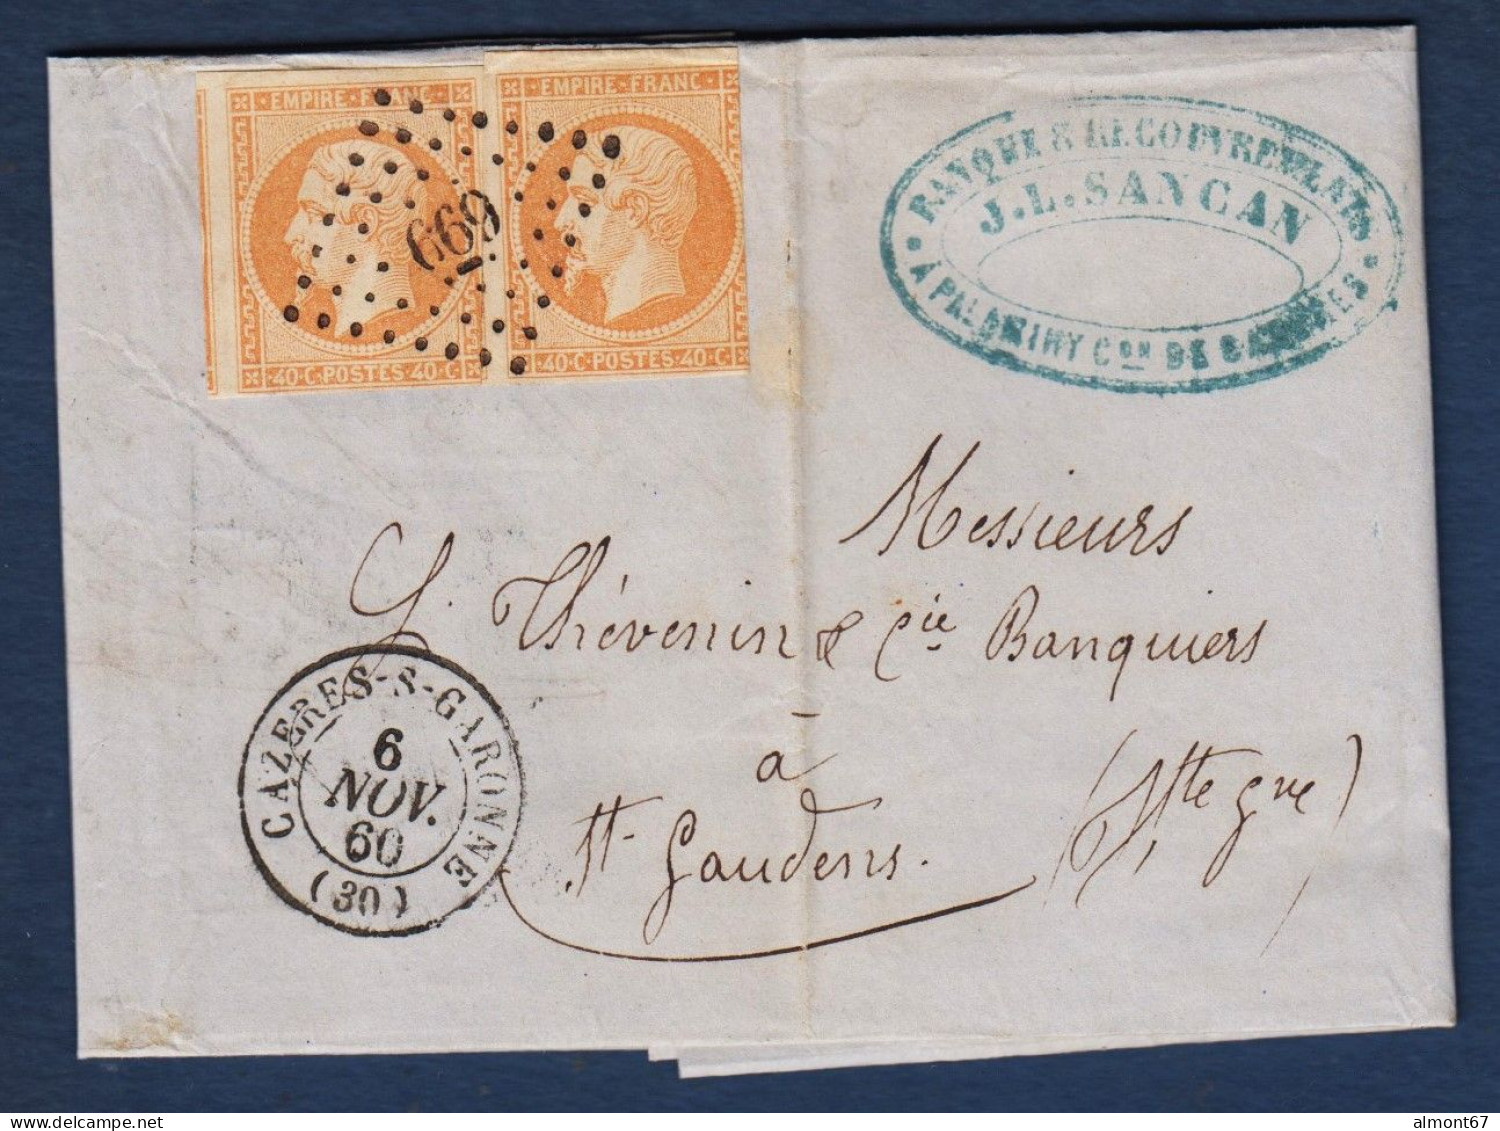 EMPIRE·FRANC·
40·C·POSTES·40·C·
EMPIRE·FRANC·
40·C·POSTES·40·C·
699
BANQUE & RECOUVREMENTS
J. L. SANCAN
À PALAMINY Cᵒⁿ DE CAZÈRES
Messieurs
L. Thévenin & Cie Banquiers
à
St Gaudens.
(Hte Gne)
CAZERES-S-GARONNE
6
NOV.
60
(30)
almont67